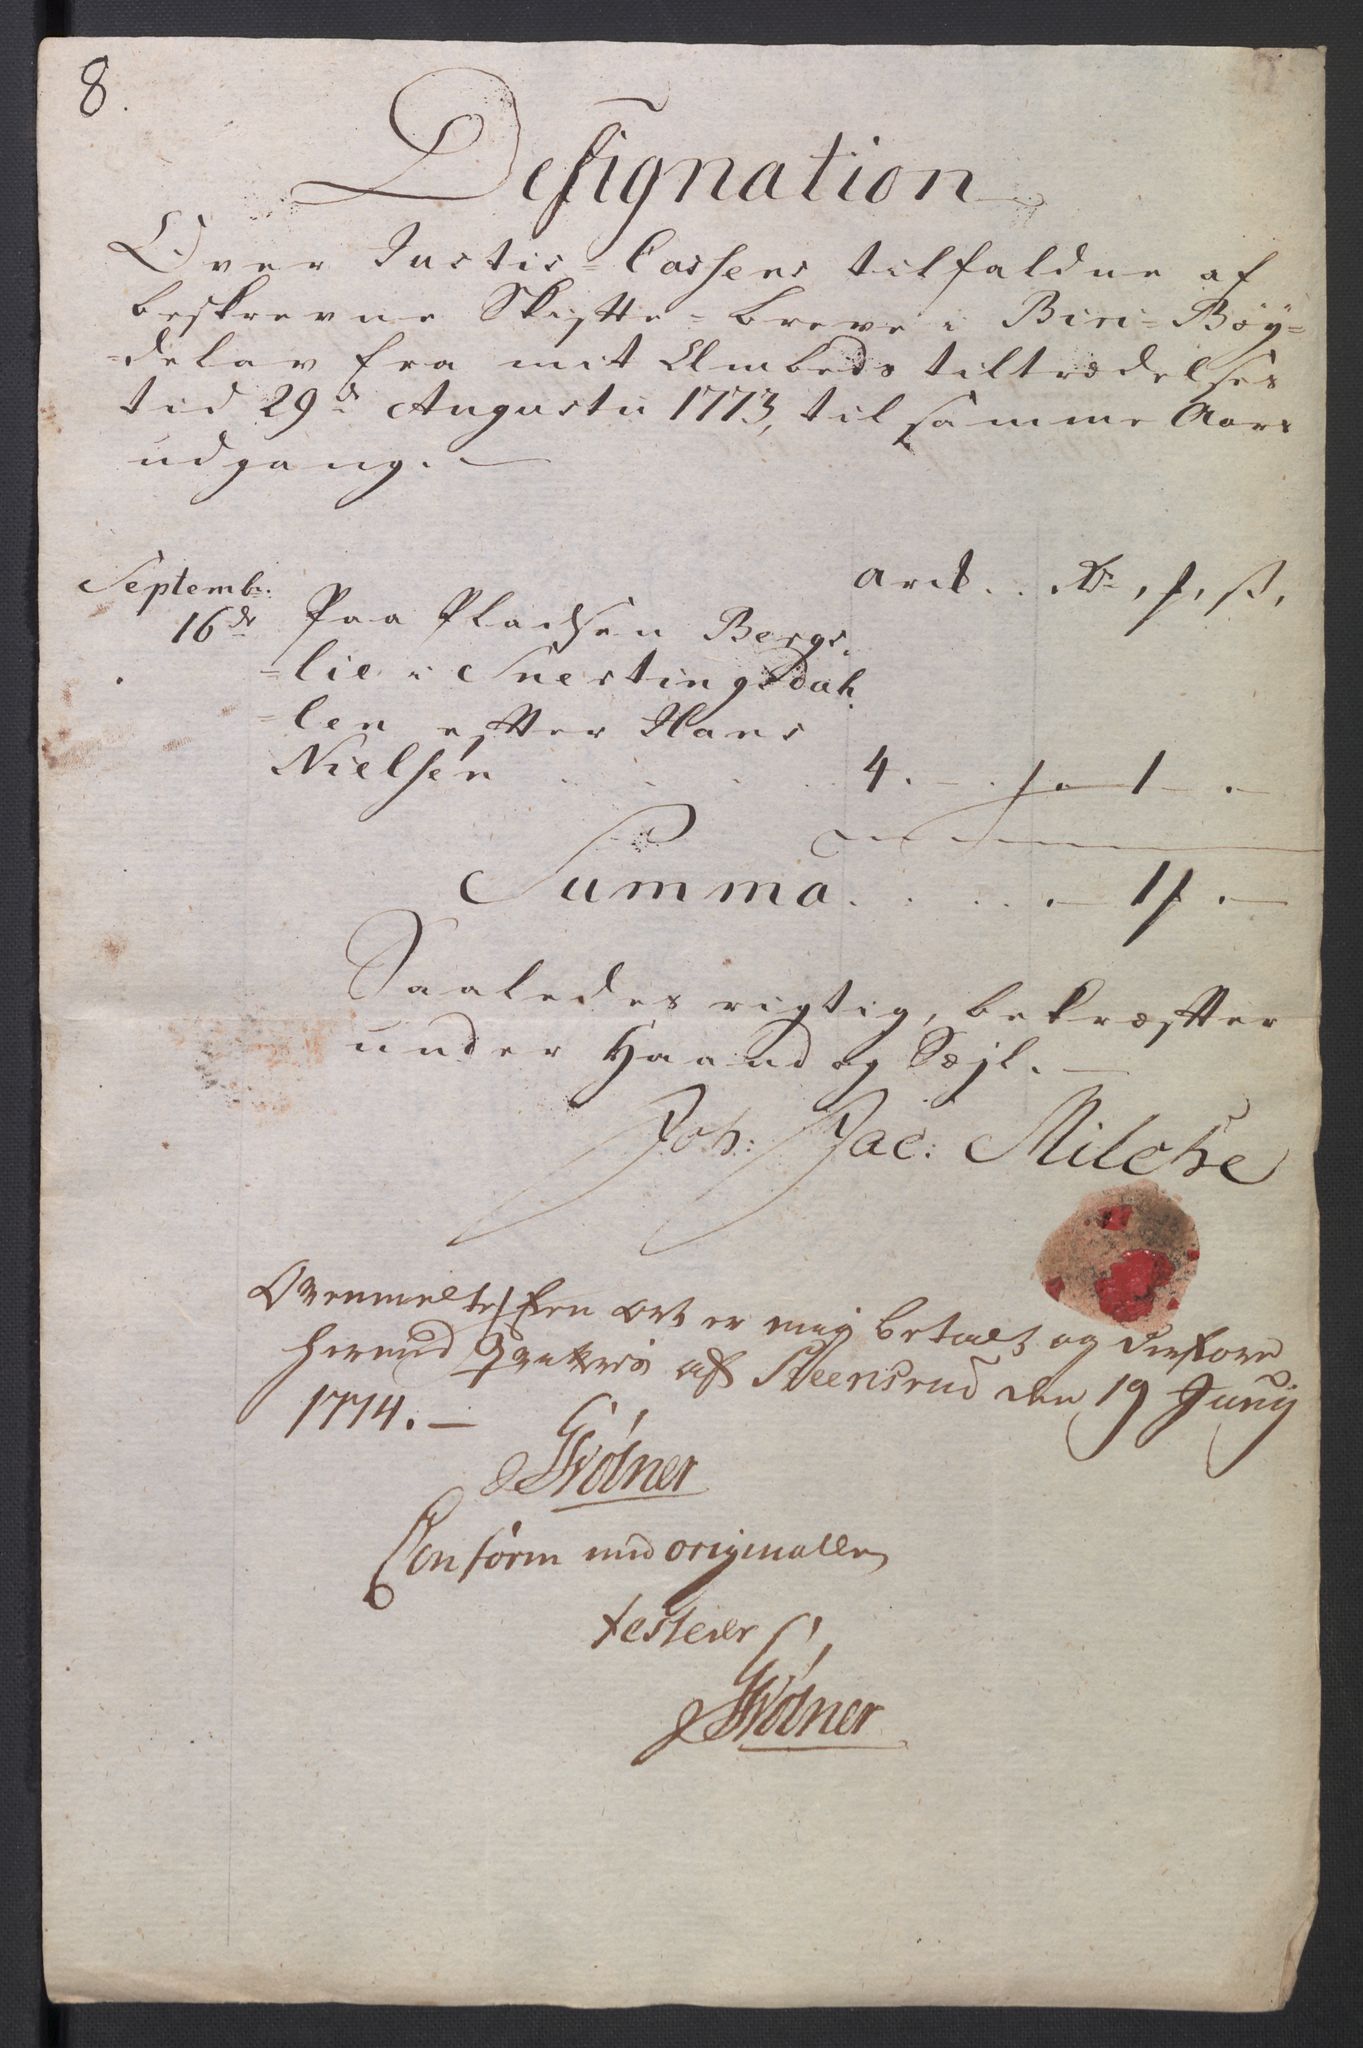 8.
Designation
Over Justis=Cassens tilfaldne af
beskrevne Skifte=breve i Biri=Böy=
=delav fra mit Embeds tiltrædelses
tid 29de Augustii 1773, til samme Aars
udgang.
Septembr. arck . . Rdr, ſ, ß,
16de Paa Pladsen Bergs
=lie i Snertingsdah
=len efter Hans
Nielsen . . . . 4. — . 1 .—
Summa . . . . . — 1 .—
Saaledes rigtig, bekræfter
under Haand og Sejl. —
Joh: Jac: Milche
Ovenmelte Een ort er mig betalt og derfore
herved Qvitteris af Steensrud den 19 Junij
1774. —
Wölner
Conform med originallen
testerer
Wölner